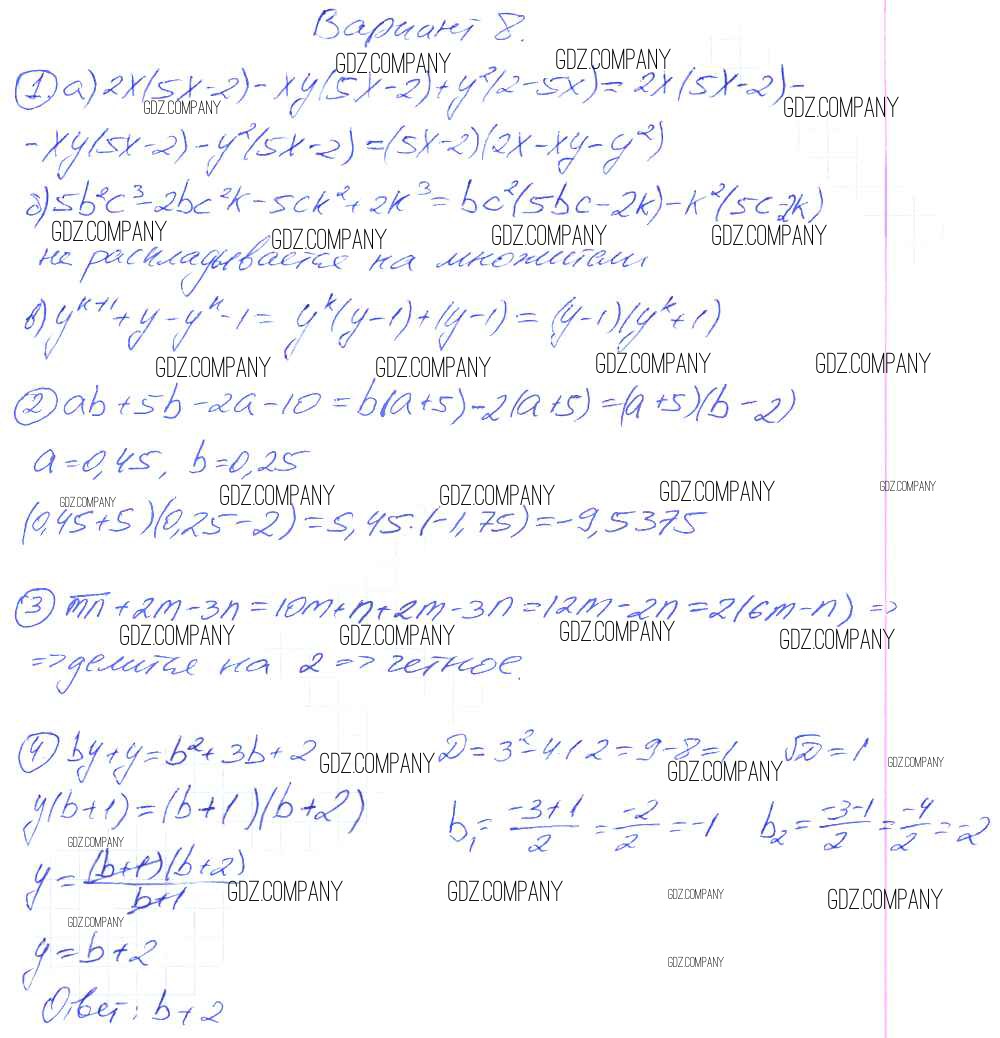 Вариант 8.
GDZ.COMPANY GDZ.COMPANY
① а) 2x(5x-2) - xy(5x-2) + y²(2-5x) = 2x(5x-2) -
GDZ.COMPANY GDZ.COMPANY
- xy(5x-2) - y²(5x-2) = (5x-2)(2x-xy-y²)
б) 5b²c³ - 2bc²k - 5ck² + 2k³ = bc²(5bc-2k) - k²(5c-2k)
GDZ.COMPANY GDZ.COMPANY GDZ.COMPANY GDZ.COMPANY
не раскладывается на множители
в) yᵏ⁺¹ + y - yᵏ - 1 = yᵏ(y-1) + (y-1) = (y-1)(yᵏ+1)
GDZ.COMPANY GDZ.COMPANY GDZ.COMPANY GDZ.COMPANY
② ab + 5b - 2a - 10 = b(a+5) - 2(a+5) = (a+5)(b-2)
a = 0,45, b = 0,25
GDZ.COMPANY GDZ.COMPANY GDZ.COMPANY GDZ.COMPANY GDZ.COMPANY
(0,45+5)(0,25-2) = 5,45·(-1,75) = -9,5375
③ m̅n̅ + 2m - 3n = 10m + n + 2m - 3n = 12m - 2n = 2(6m-n) =>
GDZ.COMPANY GDZ.COMPANY GDZ.COMPANY GDZ.COMPANY
=> делится на 2 => четное.
④ by + y = b² + 3b + 2 D = 3² - 4·1·2 = 9 - 8 = 1 √D = 1
GDZ.COMPANY GDZ.COMPANY GDZ.COMPANY
y(b+1) = (b+1)(b+2) b₁ = (-3+1)/2 = -2/2 = -1 b₂ = (-3-1)/2 = -4/2 = -2
GDZ.COMPANY
y = (b+1)(b+2)/(b+1)
GDZ.COMPANY GDZ.COMPANY GDZ.COMPANY GDZ.COMPANY
GDZ.COMPANY
y = b + 2
GDZ.COMPANY
Ответ: b + 2